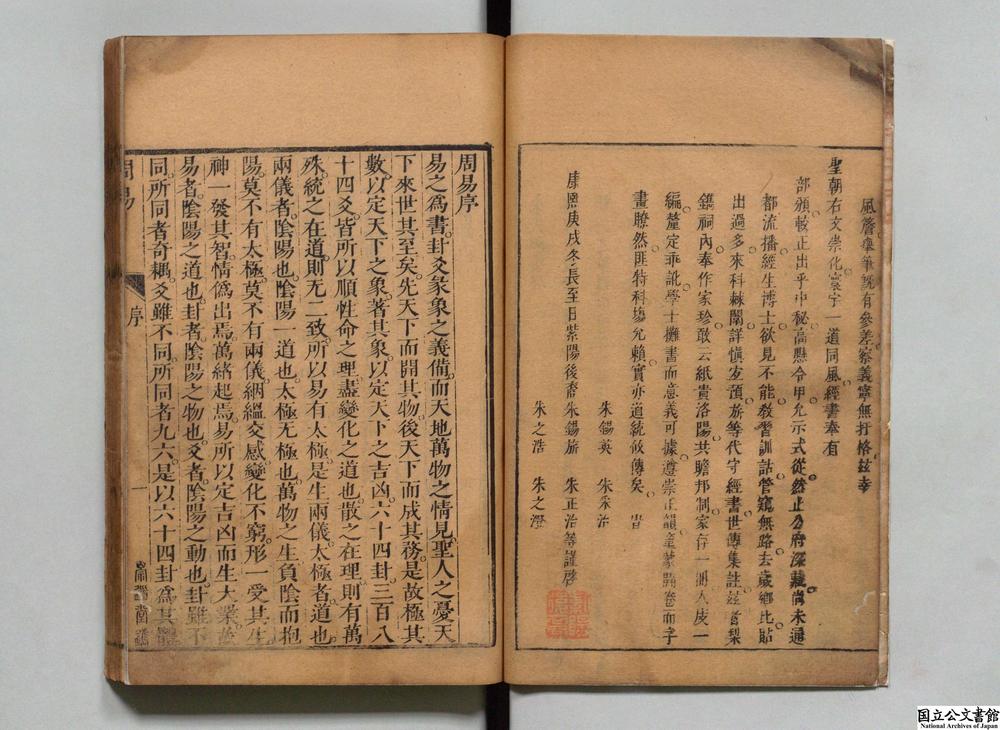 風簷舉筆旣有參差察義寧無扞格玆幸
聖朝右文崇化寰宇一道同風經書奉有
部頒較正出乎中秘高懸令甲允示式從然止公府深藏尚未遍
都流播經生博士欲見不能教習訓詁管窺無路去歲鄉比貼
出過多來科棘闈詳愼宜預旂等代守經書世傳集註玆謄梨
鐫祠內奉作家珍敢云紙貴洛陽共瞻邦制家存一冊人庋一
編釐定乖訛學士攤書而意義可據遵崇正韻童蒙開卷而字
畫瞭然匪特科塲允賴實亦道統攸傳矣 旹
康熙庚戌冬長至日紫陽後裔朱錫旂 朱正治等謹啓
朱錫英 朱采治
朱之浩 朱之澄
周易序
易之爲書卦爻彖象之義備而天地萬物之情見聖人之憂天
下來世其至矣先天下而開其物後天下而成其務是故極其
數以定天下之象著其象以定天下之吉凶六十四卦三百八
十四爻皆所以順性命之理盡變化之道也散之在理則有萬
殊統之在道則无二致所以易有太極是生兩儀太極者道也
兩儀者陰陽也陰陽一道也太極无極也萬物之生負陰而抱
陽莫不有太極莫不有兩儀絪縕交感變化不窮形一受其生
神一發其智情僞出焉萬緖起焉易所以定吉凶而生大業故
易者陰陽之道也卦者陰陽之物也爻者陰陽之動也卦雖不
同所同者奇耦爻雖不同所同者九六是以六十四卦爲其體
周易
序
一
国立公文書館
National Archives of Japan